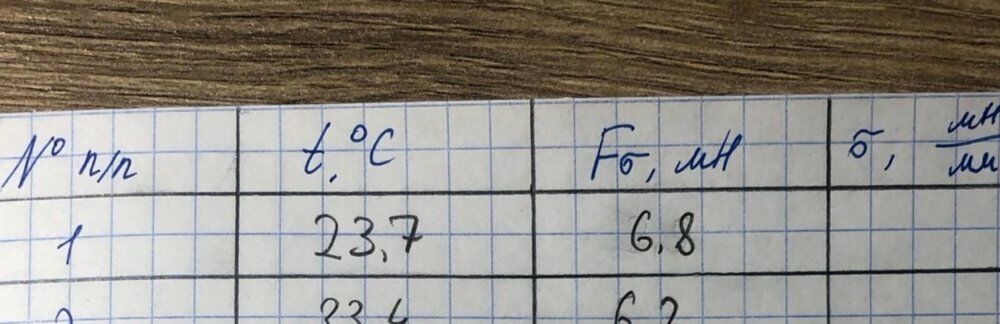 № п/п t, °C Fσ, мН σ, мН/мм
1 23,7 6,8